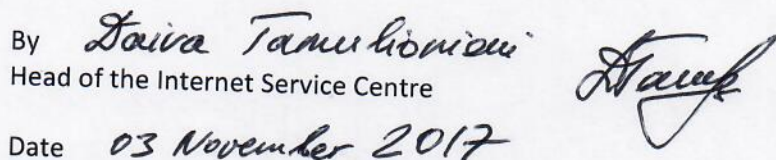 By Daiva Tamulionienė
Head of the Internet Service Centre
Date 03 November 2017